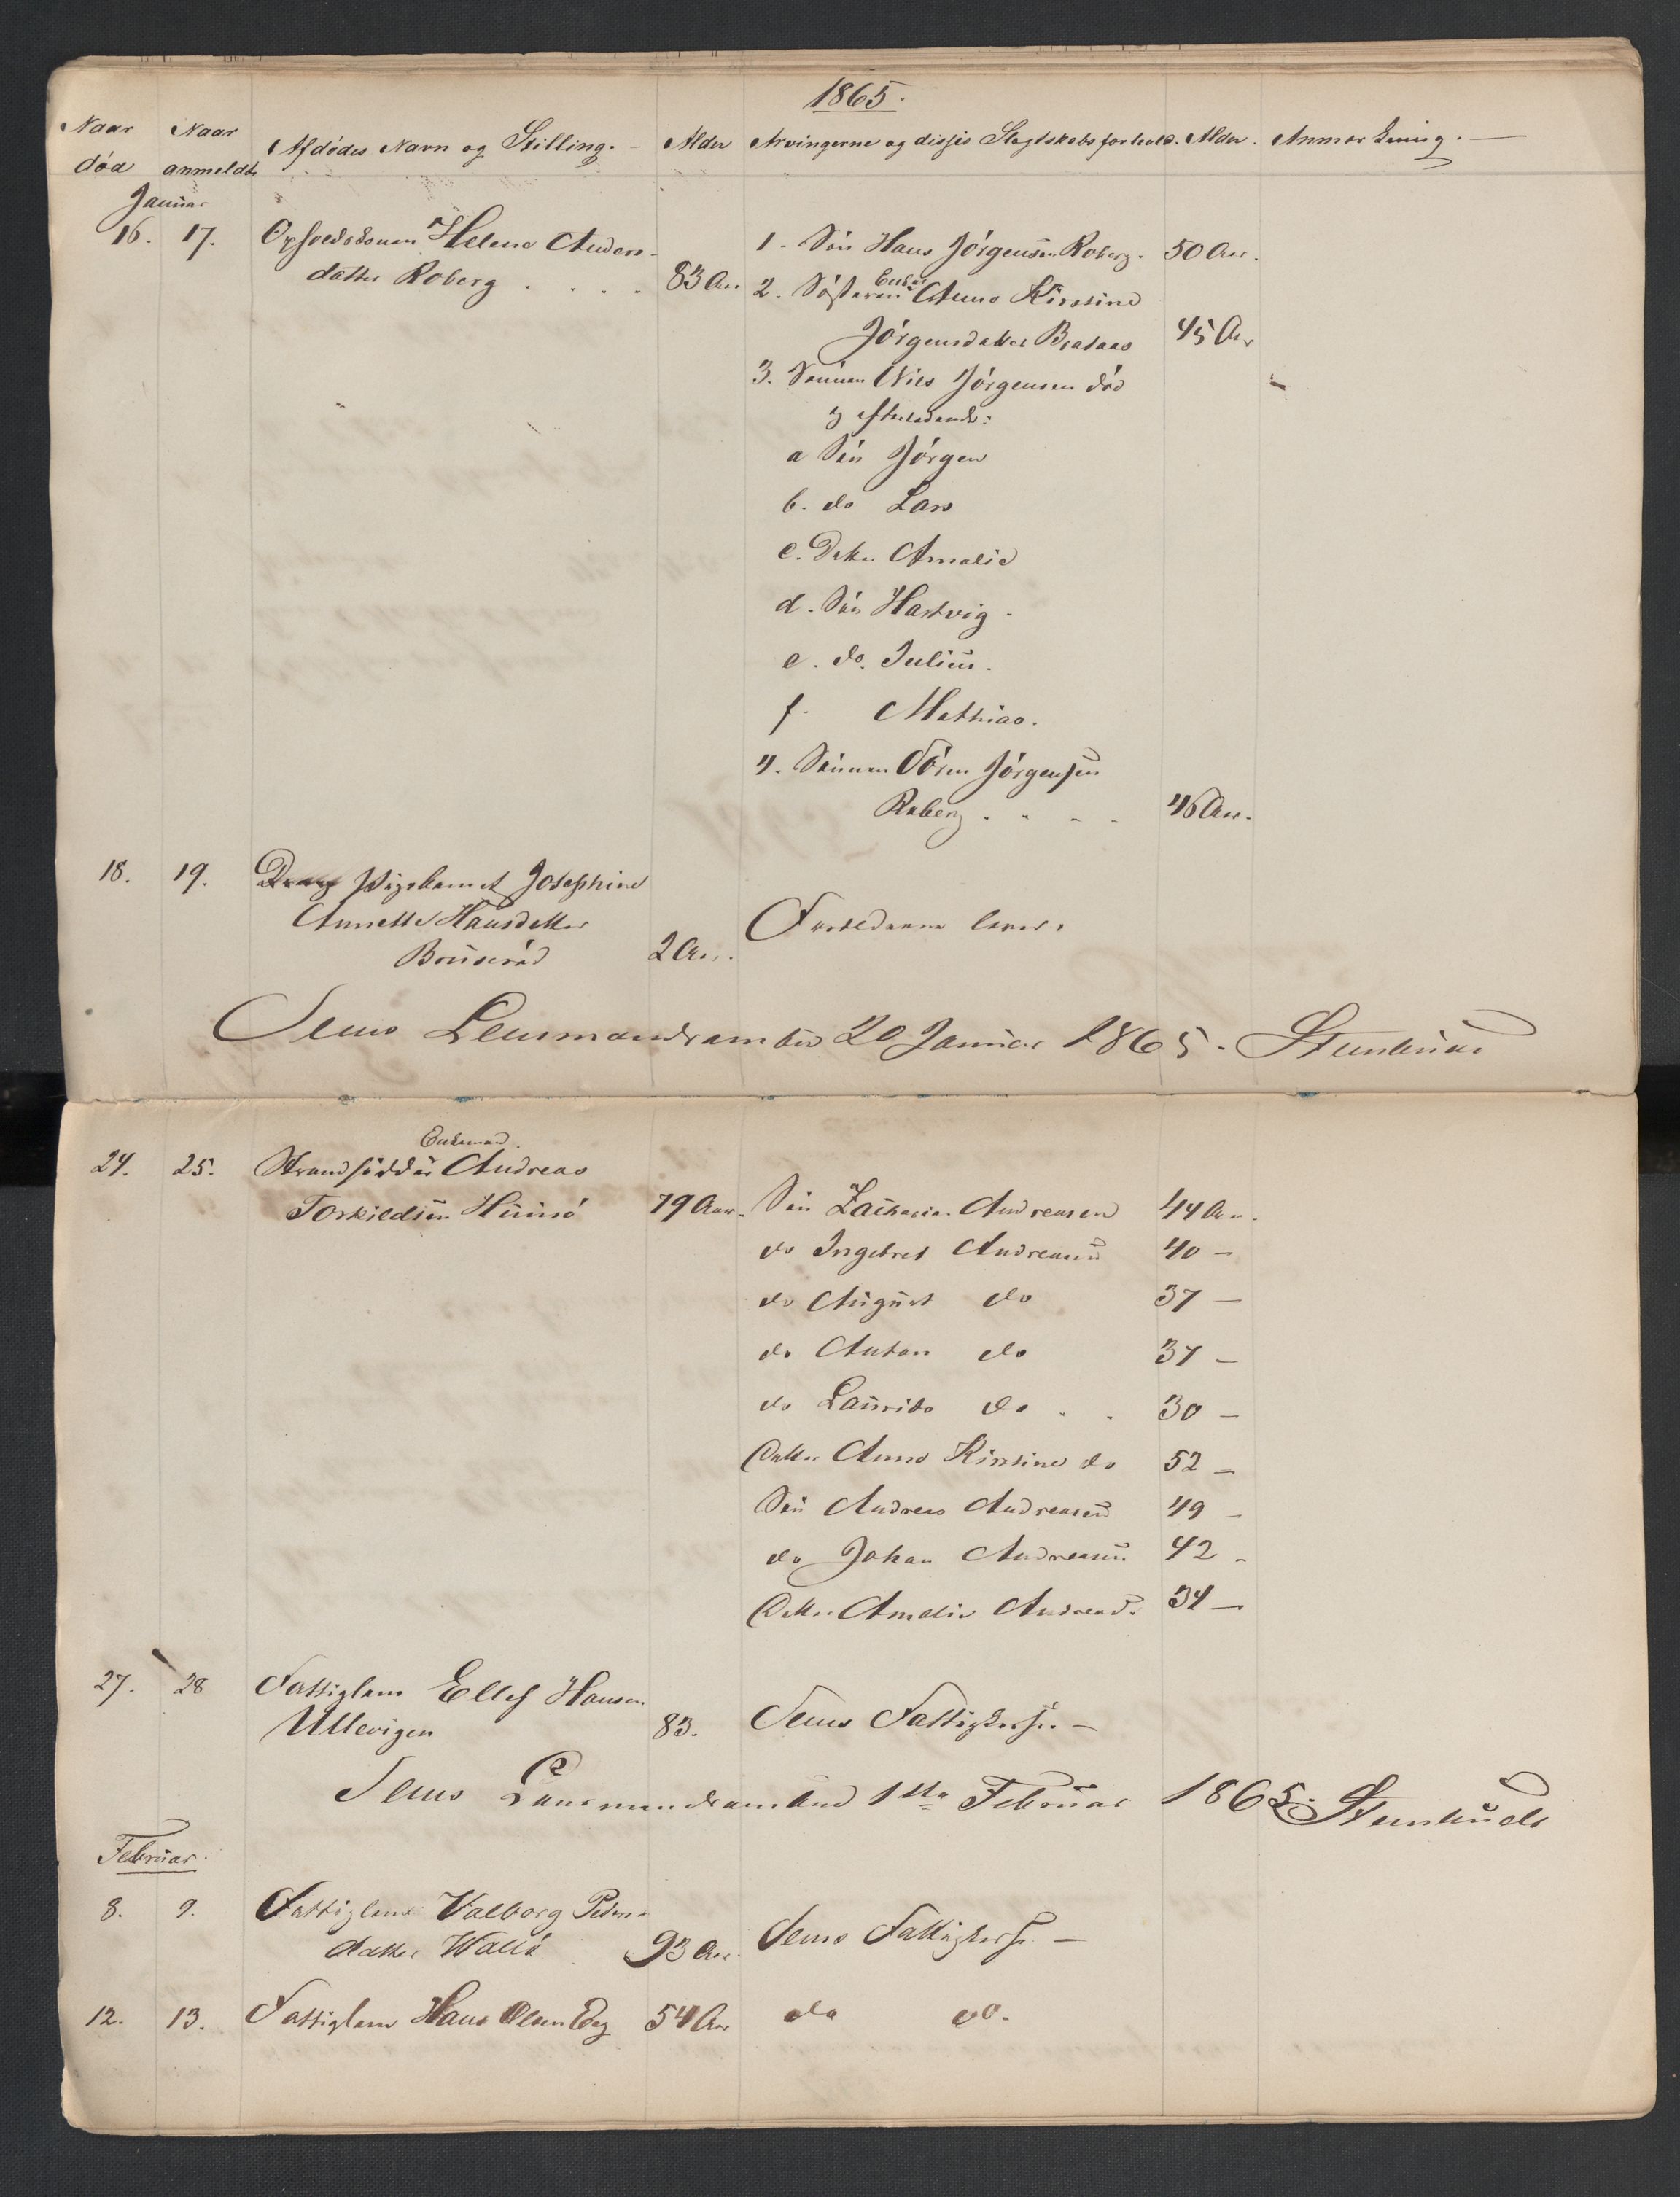 1865.
Naar død Naar anmeldt Afdødes Navn og Stilling. Alder Arvingerne og disses Slægtskabsforhold. Alder. Anmærkning.
Januar
16. 17. Opfoedskonen Helene Anders- 1. Søn Hans Jörgensen Roberg. 50 Aar.
datter Roberg . . . . 83 Aar 2. Enken Anne Kirstine
Jörgensdatter Brataas 45 Aar
3. Sönnen Nils Jörgensen död
efterladende:
a Sön Jörgen
b. do Lars
c. Datter Amalie
d. Sön Hartvig.
e. do. Julius.
f. Mathias.
4. Sönnen Sören Jörgensen
Roberg . . . . 46 Aar.
18. 19. Pigebarnet Josephine
Annette Hansdatter Forældrene lever.
Bruseröd 2 Aar.
Sems Lensmandsembed 20 Januar 1865.
Enkemand.
24. 25. Strandsidder Andreas
Torkildsen Huusö 79 Aar. Sön Zacharias Andreasen 44 Aar.
do Ingebret Andreasen 40 —
do August do 37 —
do Anton do 37 —
do Laurits do . . 30 —
Datter Anne Kirstine do 52 —
Sön Andreas Andreasen 49 —
do Johan Andreasen 42 —
Datter Amalie Andreasd. 34 —
27. 28 Fattiglem Ellef Hansen
Ullevigen 83. Sems Fattigkasse. —
Sems Lensmandsembed 1ste Februar 1865.
Februar.
8. 9. Fattiglem Valborg Peders-
datter Wallö 93 Aar. Sems Fattigkasse —
12. 13. Fattiglem Hans Olsen Eeg 54 Aar do do.